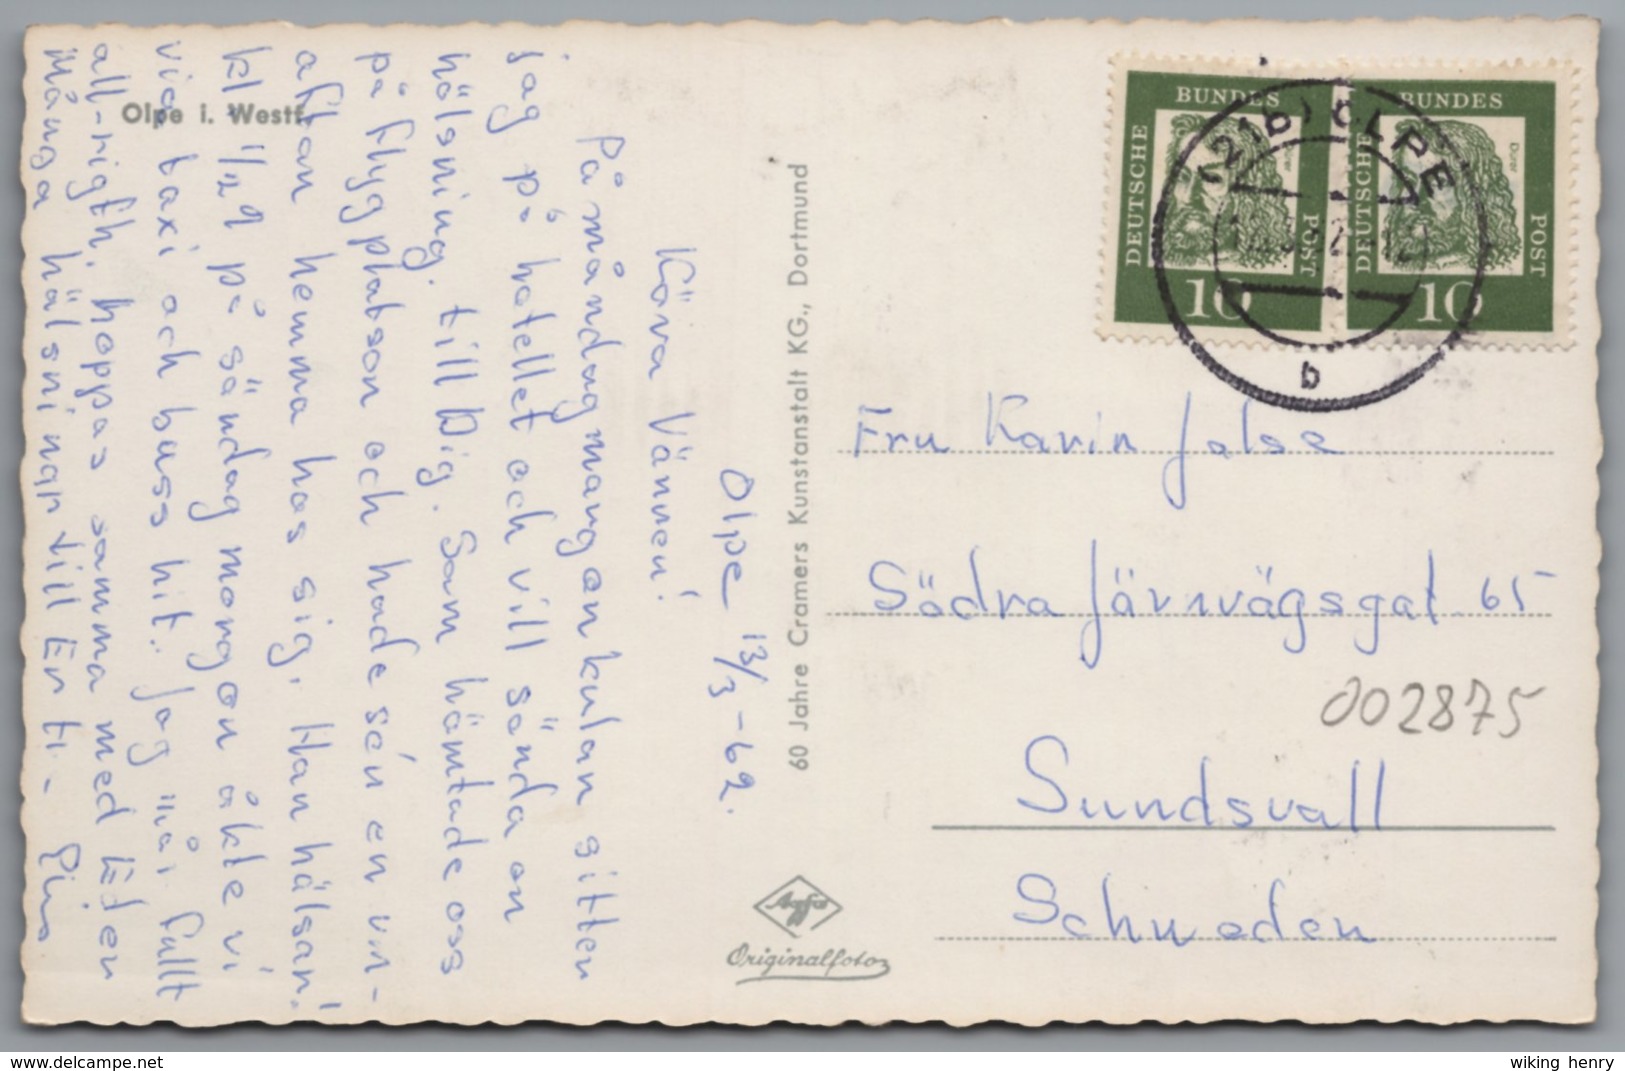 Olpe i. Westf.
Olpe 13/3-62.
Kära Vännen!
På måndagmargonkulan sitter
jag på hotellet och vill sända en
hälsning till Dig. Sam hämtade oss
på flygplatsen och hade sén en vin-
afton hemma hos sig. Han hälsar!
kl 1/29 på söndag morgon åkte vi
via taxi och buss hit. Jag mår fullt
all-rigth, hoppas samma med Eder
Många hälsningar till Er
60 Jahre Cramers Kunstanstalt KG., Dortmund
Agfa
Originalfoto
DEUTSCHE BUNDES POST
Dürer
10
DEUTSCHE BUNDES POST
Dürer
10
(21b) OLPE
b
Fru Karin
Södra Järnvägsgat 65
002875
Sundsvall
Schweden
www.delcampe.net
wiking henry